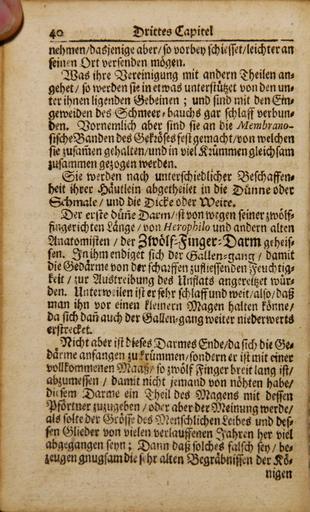 40 Drittes Capitel
nehmen/dasjenige aber/so vorbey schiesset/leichter an
seinen Ort versenden mögen.
Was ihre Vereinigung mit andern Theilen an-
gehet/so werden sie in etwas unterstützet von den un-
ter ihnen ligenden Gebeinen; und sind mit den Ein-
geweiden des Schmeer-bauchs gar schlaff verbun-
den. Vornemlich aber sind sie an die Membrano-
sische Banden des Gekröses fest gemacht/von welchen
sie zusam̃en gehalten/und in viel Krümmen gleichsam
zusammen gezogen werden.
Sie werden nach unterschiedlicher Beschaffen-
heit ihrer Häutlein abgetheilet in die Dünne oder
Schmale/und die Dicke oder Weite.
Der erste dün̄e Darm/ist von wegen seiner zwölff-
fingerichten Länge/von Herophilo und andern alten
Anatomisten/der Zwölff-Finger-Darm geheis-
sen. In ihm endiget sich der Gallen-gang/damit
die Gedärme von der scharffen zufliessenden Feuchtig-
keit/zur Austreibung des Unflats angereitzet wür-
den. Unterweilen ist er sehr schlaff und weit/also/daß
man ihn vor einen kleinern Magen halten könne/
da sich dan̄ auch der Gallen-gang weiter niederwerts
erstrecket.
Nicht aber ist dieses Darmes Ende/da sich die Ge-
därme anfangen zu krümmen/sondern er ist mit einer
vollkommenen Maaß/so zwölf Finger breit lang ist/
abzumessen/damit nicht jemand von nöhten habe/
diesem Darme ein Theil des Magens mit dessen
Pförtner zuzugeben/oder aber der Meinung werde/
als solte der Grösse des Menschlichen Leibes und des-
sen Glieder von vielen verlauffenen Jahren her viel
abgegangen seyn; Dann daß solches falsch sey/be-
zeugen gnugsam die sehr alten Begräbnissen der Kö-
nigen